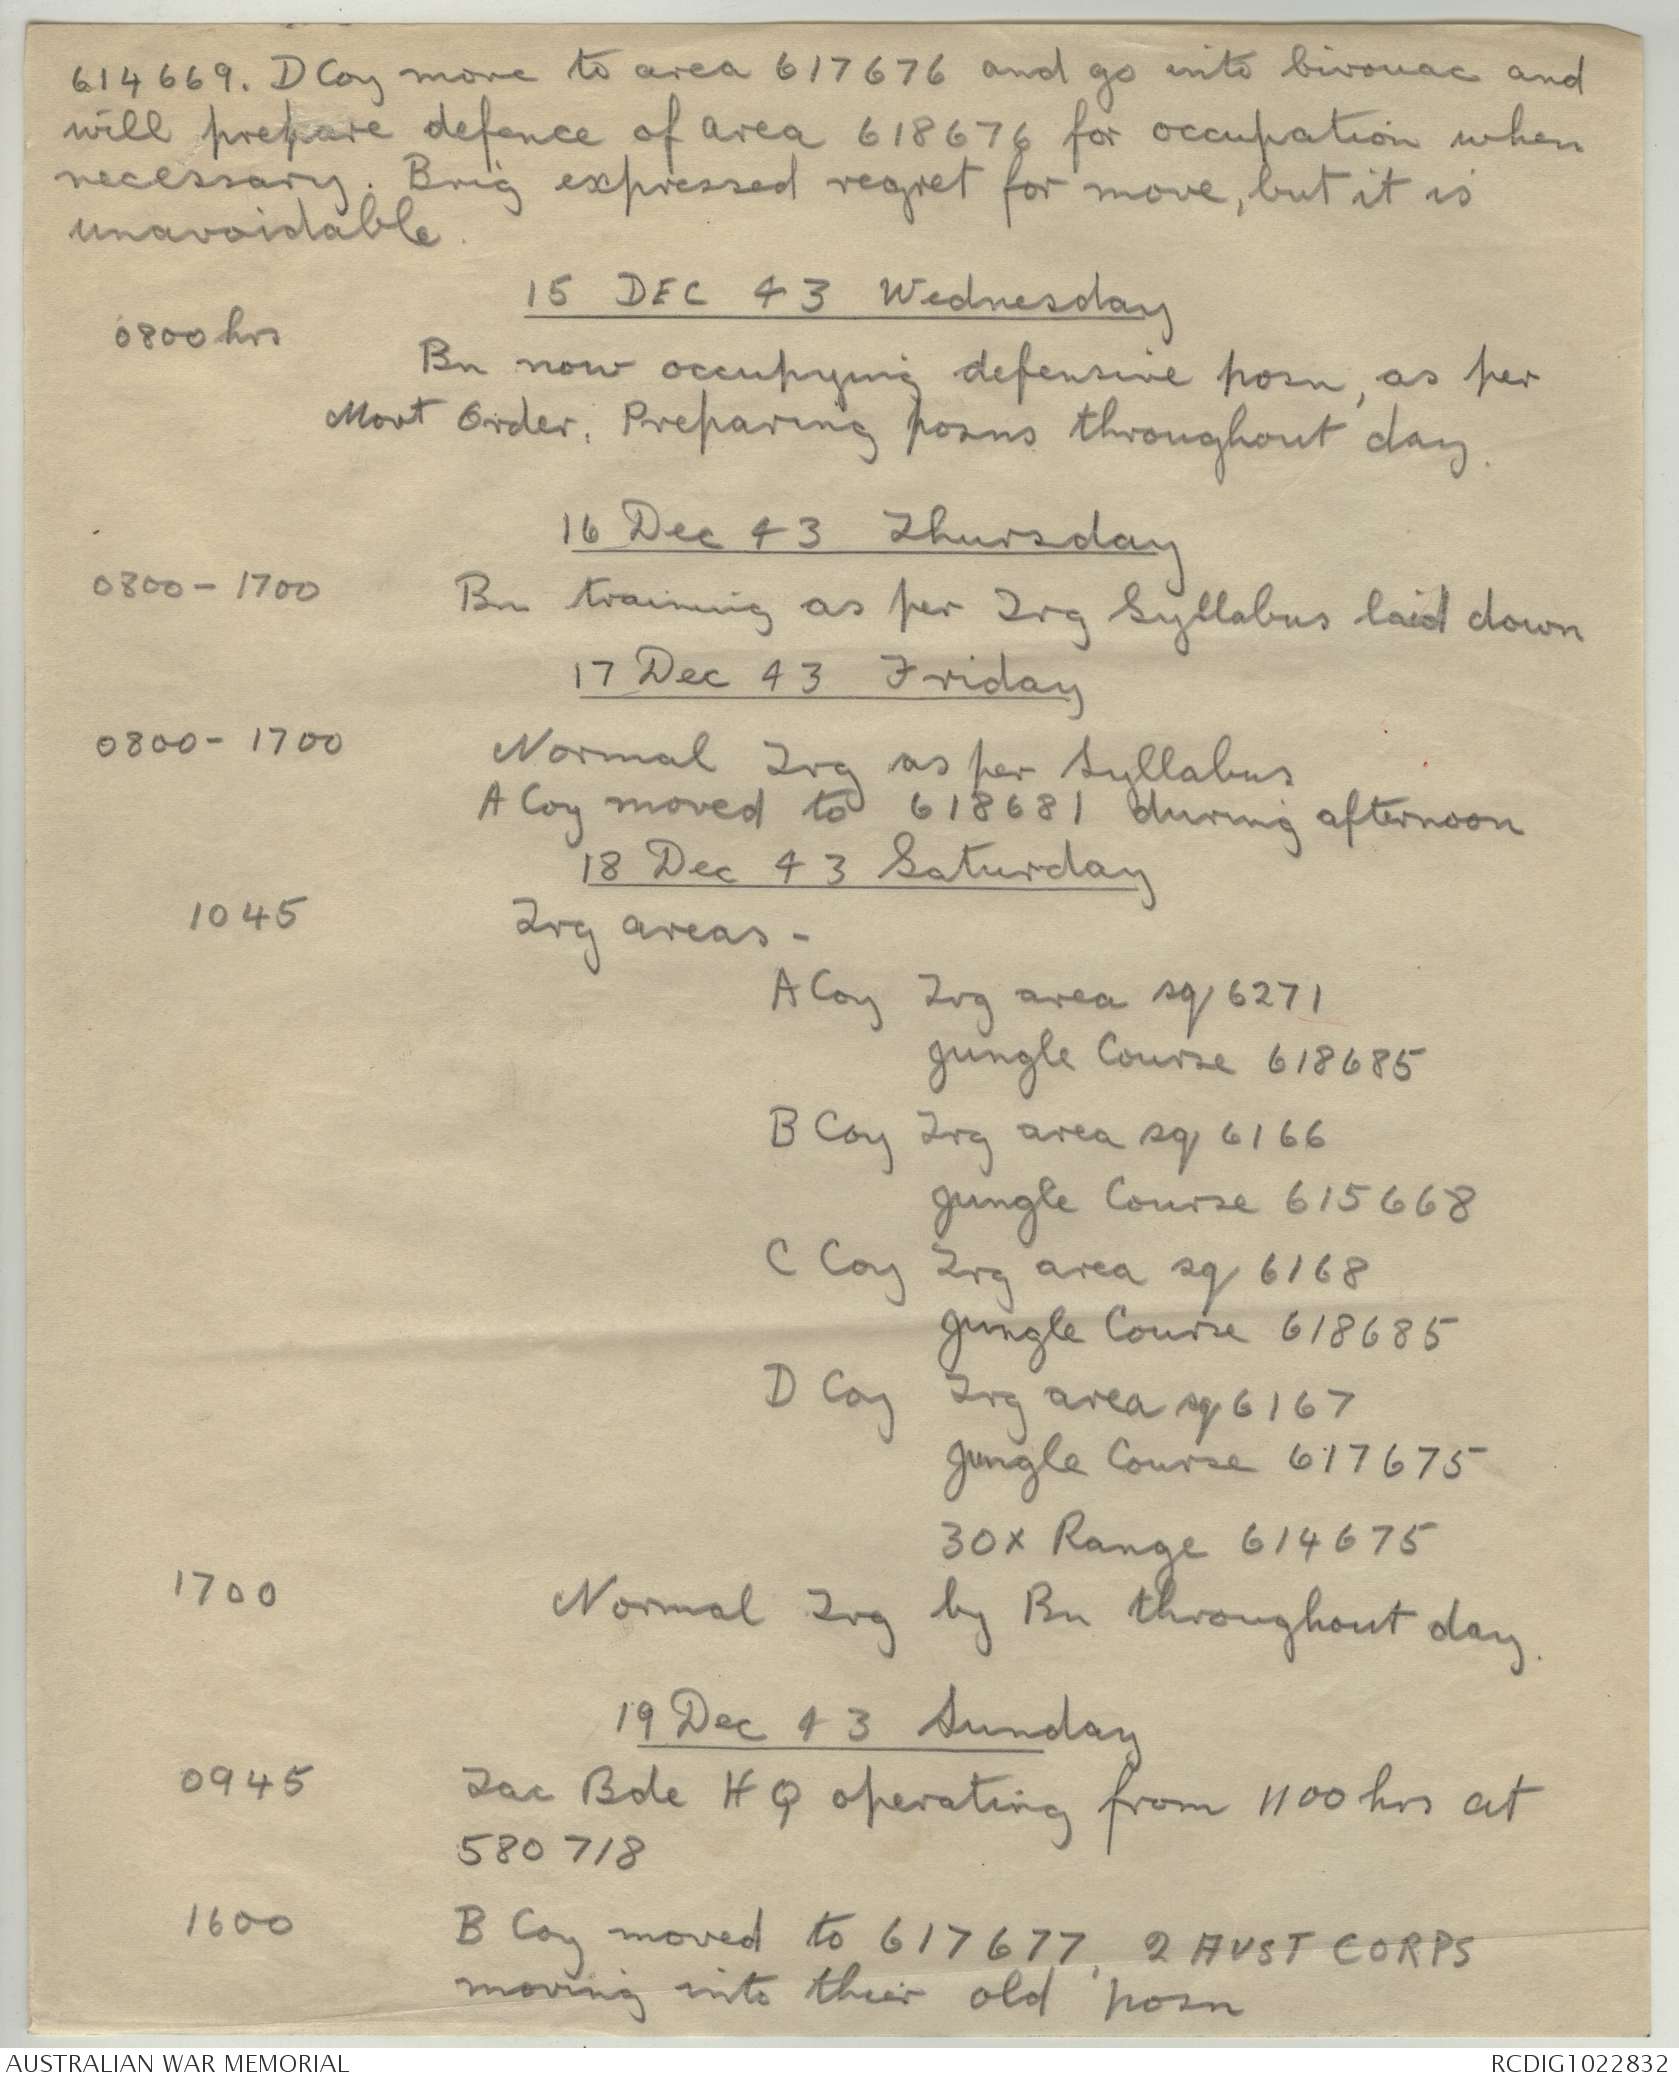 614669. D Coy move to area 617676 and go into bivouac and
will prepare defence of area 618676 for occupation when
necessary. Brig expressed regret for move, but it is
unavoidable.
15 DEC 43 Wednesday
0800 hrs
Bn now occupying defensive posn, as per
Movt Order. Preparing posns throughout day.
16 Dec 43 Thursday
0800 - 1700 Bn training as per Trg Syllabus laid down
17 Dec 43 Friday
0800 - 1700 Normal Trg as per Syllabus
A Coy moved to 618681 during afternoon
18 Dec 43 Saturday
1045 Trg areas -
A Coy Trg area sq 6271
Jungle Course 618685
B Coy Trg area sq 6166
Jungle Course 615668
C Coy Trg area sq 6168
Jungle Course 618685
D Coy Trg area sq 6167
Jungle Course 617675
30x Range 614675
1700 Normal Trg by Bn throughout day.
19 Dec 43 Sunday
0945 Tac Bde HQ operating from 1100 hrs at
580718
1600 B Coy moved to 617677, 2 AUST CORPS
moving into their old posn
AUSTRALIAN WAR MEMORIAL RCDIG1022832